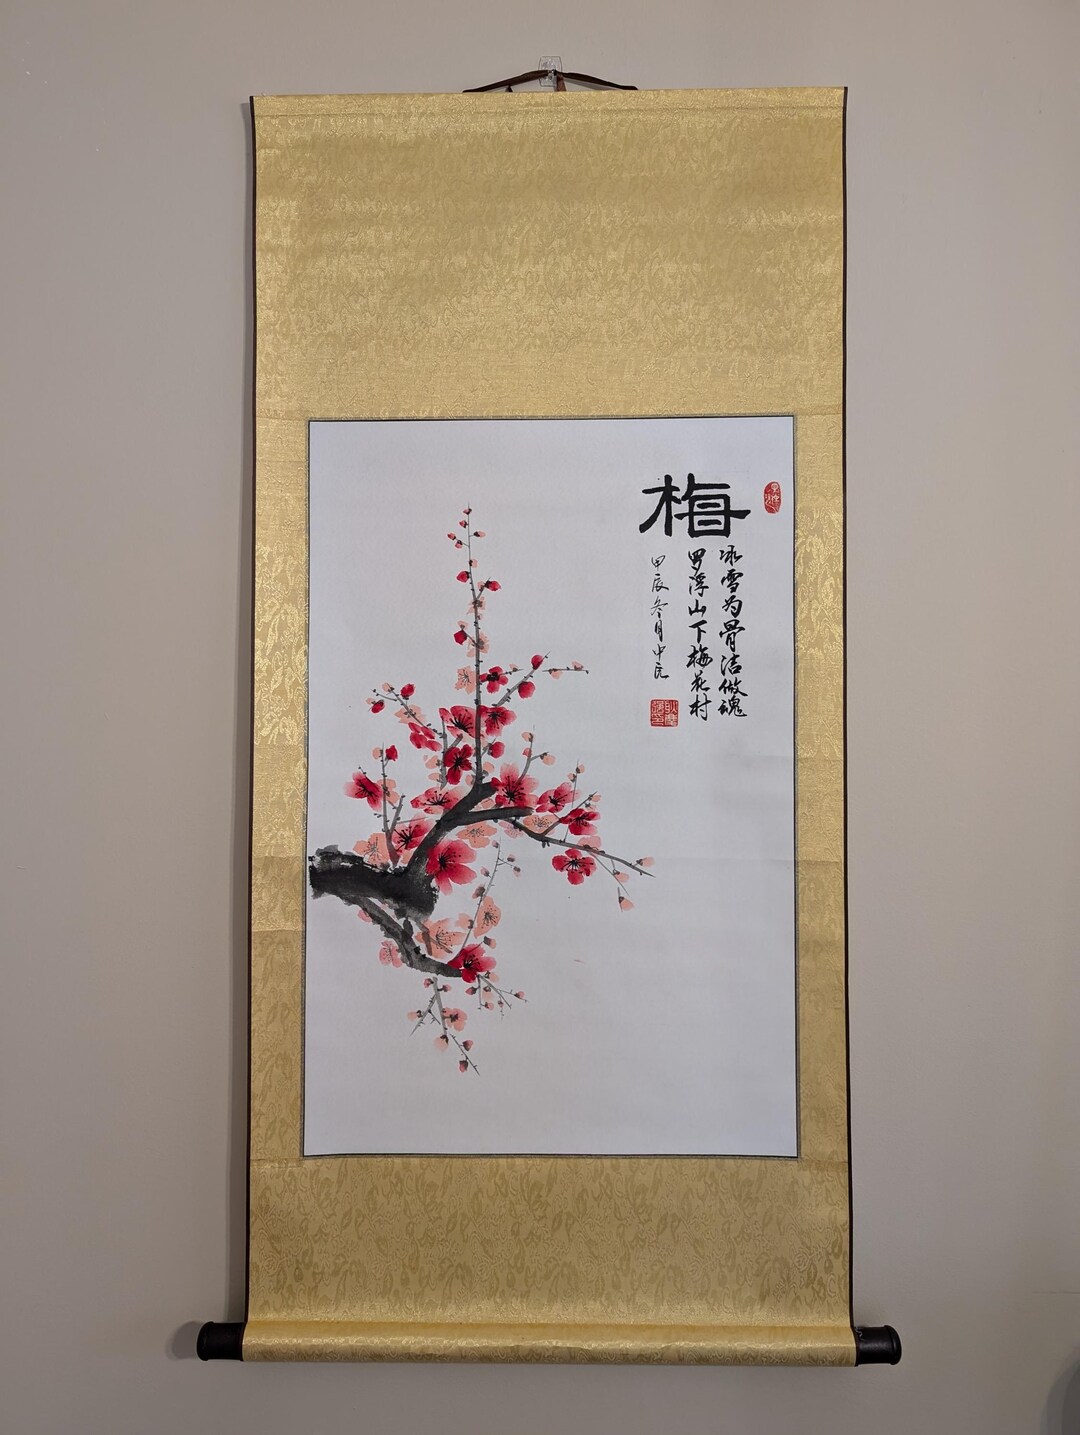 梅
冰雪为骨洁做魂
罗浮山下梅花村
甲辰冬月中氏